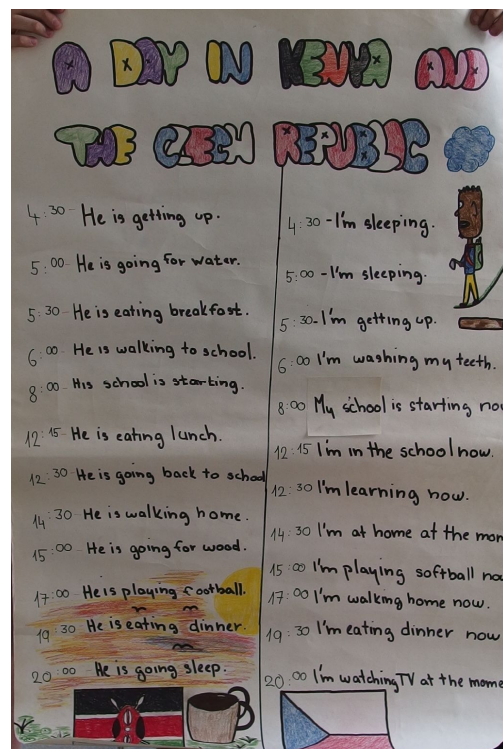 A DAY IN KENYA AND
THE CZECH REPUBLIC
4:30 - He is getting up.
5:00 - He is going for water.
5:30 - He is eating breakfast.
6:00 He is walking to school.
8:00 His school is starting.
12:15 - He is eating lunch.
12:30 - He is going back to school
14:30 - He is walking home.
15:00 - He is going for wood.
17:00 - He is playing football.
19:30 He is eating dinner.
20:00 - He is going sleep.
4:30 - I'm sleeping.
5:00 - I'm sleeping.
5:30 - I'm getting up.
6:00 I'm washing my teeth.
8:00 My school is starting now
12:15 I'm in the school now.
12:30 I'm learning now.
14:30 I'm at home at the mom
15:00 I'm playing softball now
17:00 I'm walking home now.
19:30 I'm eating dinner now
20:00 I'm watching TV at the mome